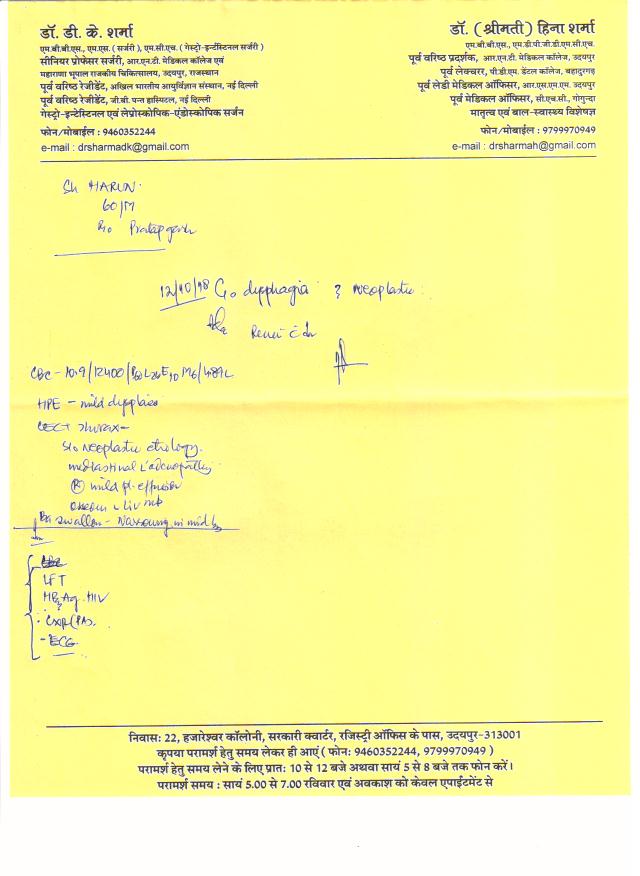 डॉ. डी. के. शर्मा
एम.बी.बी.एस., एम.एस. ( सर्जरी ), एम.सी.एच. ( गेस्ट्रो-इन्टेंस्टिनल सर्जरी )
सीनियर प्रोफेसर सर्जरी, आर.एन.टी. मेडिकल कॉलेज एवं
महाराणा भूपाल राजकीय चिकित्सालय, उदयपुर, राजस्थान
पूर्व वरिष्ठ रेजीडेंट, अखिल भारतीय आयुर्विज्ञान संस्थान, नई दिल्ली
पूर्व वरिष्ठ रेजीडेंट, जी.बी. पन्त हास्पिटल, नई दिल्ली
गेस्ट्रो-इन्टेस्टिनल एवं लेप्रोस्कोपिक-एंडोस्कोपिक सर्जन
फोन/मोबाईल : 9460352244
e-mail : drsharmadk@gmail.com
डॉ. (श्रीमती) हिना शर्मा
एम.बी.बी.एस., एम.डी.पी.जी.डी.एम.सी.एच.
पूर्व वरिष्ठ प्रदर्शक, आर.एन.टी. मेडिकल कॉलेज, उदयपुर
पूर्व लेक्चरर, पी.डी.एम. डेंटल कॉलेज, बहादुरगढ़
पूर्व लेडी मेडिकल ऑफिसर, आर.एस.एम.एम. उदयपुर
पूर्व मेडिकल ऑफिसर, सी.एच.सी., गोगुन्दा
मातृत्व एवं बाल-स्वास्थ्य विशेषज्ञ
फोन/मोबाईल : 9799970949
e-mail : drsharmah@gmail.com
Sh HARUN.
60/M
R/o Pratapgarh
12/10/98 C/o dysphagia ? Neoplastic
CBC - 10.9/12400/P60L26E10M6/4.89L
HPE - mild dysplasia
CECT thorax -
S/o Neoplastic etiology.
mediastinal L'adenopathy
(R) mild pl. effusion
Ba swallow - Narrowing in mid
LFT
HBsAg. HIV
CXR (PA).
- ECG
निवासः 22, हजारेश्वर कॉलोनी, सरकारी क्वार्टर, रजिस्ट्री ऑफिस के पास, उदयपुर-313001
कृपया परामर्श हेतु समय लेकर ही आएं ( फोनः 9460352244, 9799970949 )
परामर्श हेतु समय लेने के लिए प्रातः 10 से 12 बजे अथवा सायं 5 से 8 बजे तक फोन करें।
परामर्श समय : सायं 5.00 से 7.00 रविवार एवं अवकाश को केवल एपाईटमेंट से